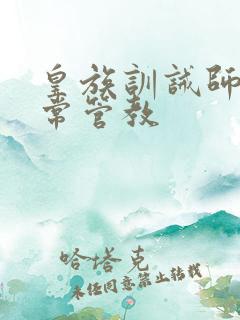 皇族訓誡師
常管教
哈塔克
未经同意禁止转载